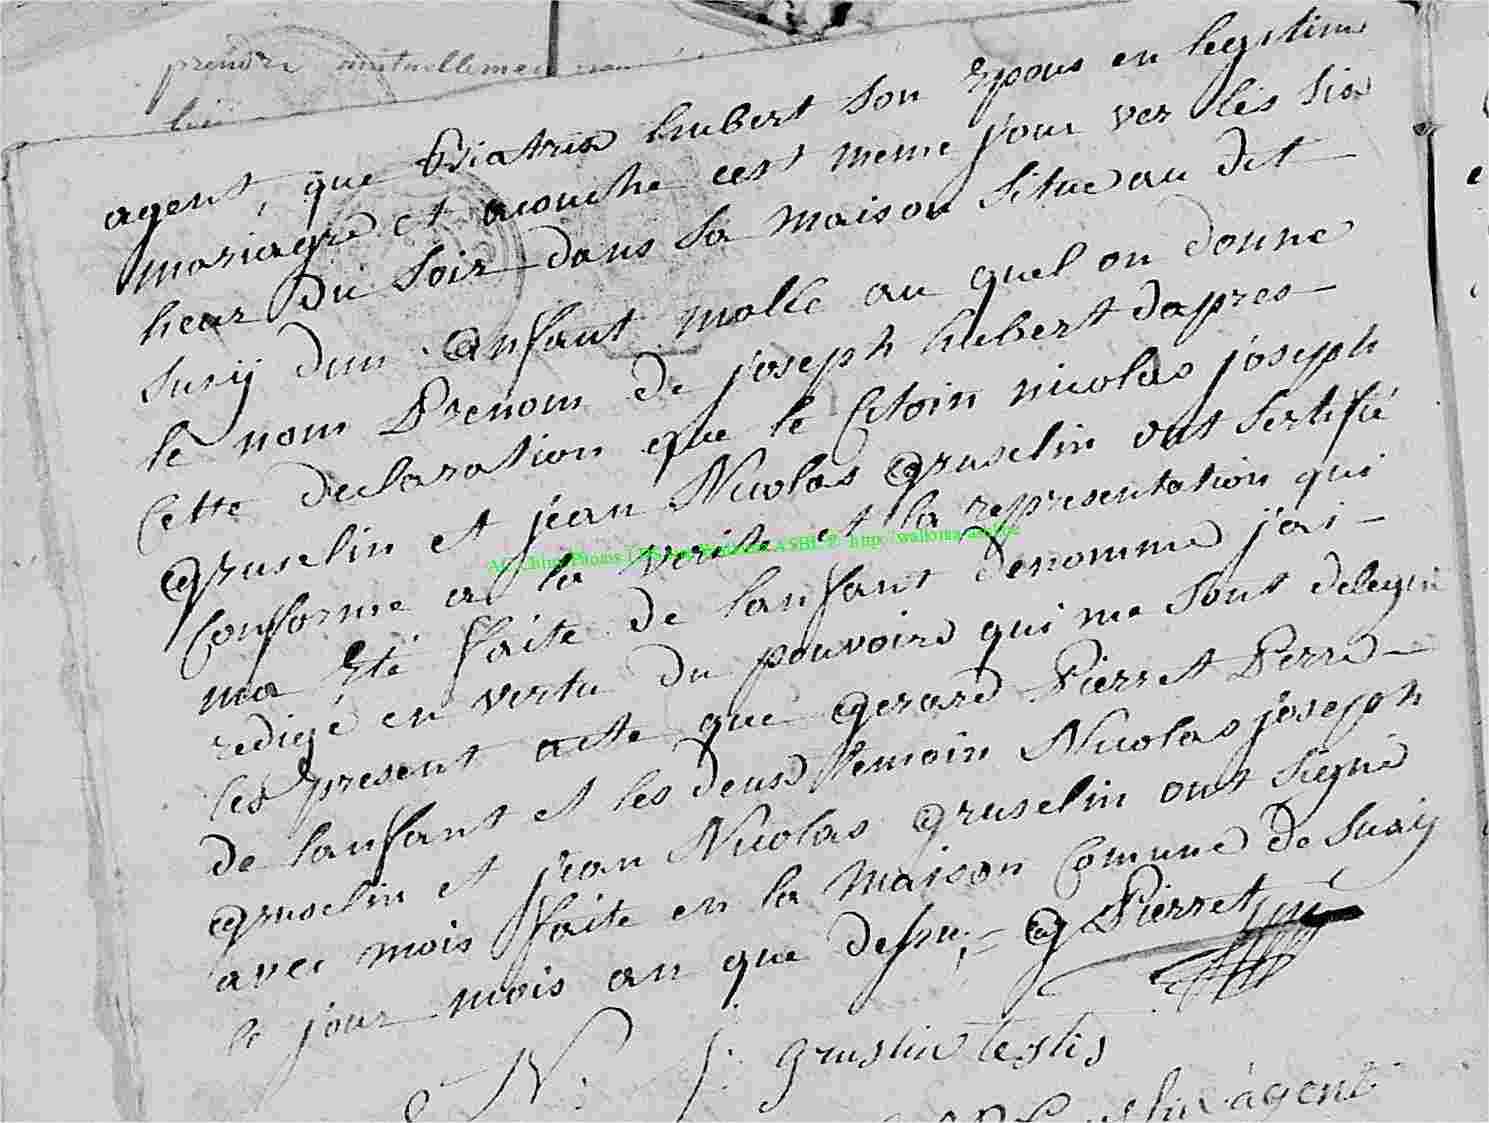 prendre mutuellement
agent, que Biatrix hubert son Epous en legitime
mariagre et acouche cest meme jour ver les six
heur Du Soir dans sa maison situe au dit
Suxij dun anfant malle au quel on donne
le nom Prenom de joseph hubert dapres
Cette declaration que le Citoin nicolas joseph
gruselin et jean Nicolas gruselin ont sertifié
Conforme a la verite et la representation qui
ma Eté faite de lanfant denomme j'ai
redigé en vertu du pouvoire qui me sont delegué
les present acte que gerard Pierret Perre
de lanfant et les deux temoin Nicolas joseph
gruselin et jean Nicolas gruselin ont signé
avec mois faite en la maison Comune de Suxij
le jour mois an que dessu, g Pierret
N: j: gruslin testis
agent